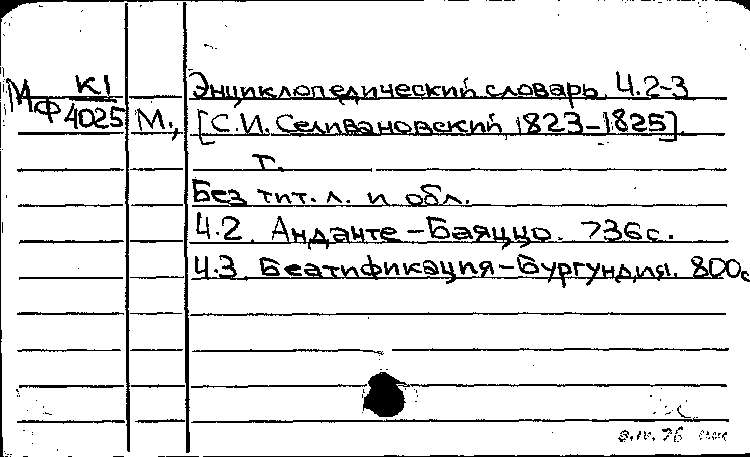 К1 Энциклопедический словарь. Ч.2-3
МФ 4025 М., [С.И. Селивановский, 1823-1825].
т.
Без тит. л. и обл.
Ч.2. Анданте-Баяццо. 736с.
Ч.3. Беатификация-Бургундия. 800с